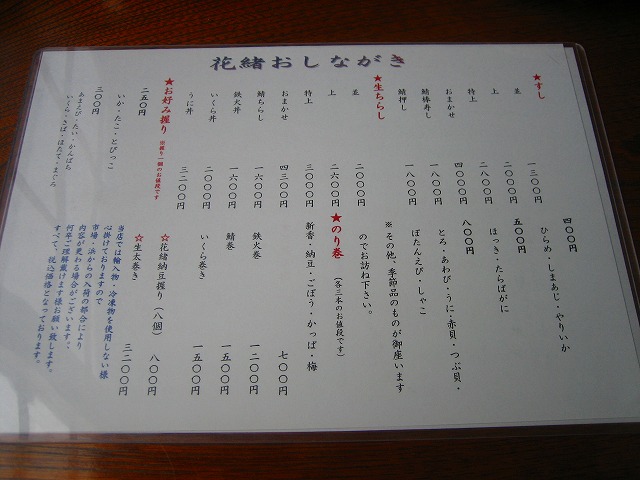 花緒おしながき
★すし
並 一三〇〇円
上 二〇〇〇円
特上 二八〇〇円
おまかせ 四〇〇〇円
鯖棒寿し 一八〇〇円
鯖押し 一八〇〇円
★生ちらし
並 二〇〇〇円
上 二六〇〇円
特上 三〇〇〇円
おまかせ 四三〇〇円
鯖ちらし 一六〇〇円
鉄火丼 一六〇〇円
いくら丼 二〇〇〇円
うに丼 三二〇〇円
★お好み握り ※握り一個のお値段です
二五〇円
いか・たこ・とびっこ
三〇〇円
あまえび・たい・かんぱち
いくら・さば・ほたて・まぐろ
四〇〇円
ひらめ・しまあじ・やりいか
五〇〇円
ほっき・たらばがに
八〇〇円
とろ・あわび・うに・赤貝・つぶ貝・
ぼたんえび・しゃこ
※その他、季節品のものが御座います
のでお訪ね下さい。
★のり巻(各三本のお値段です)
新香・納豆・ごぼう・かっぱ・梅 七〇〇円
鉄火巻 一二〇〇円
鯖巻 一五〇〇円
いくら巻き 一五〇〇円
☆花緒納豆握り(八個) 八〇〇円
☆生太巻き 三二〇〇円
当店では輸入物・冷凍物を使用しない様
心掛けておりますので
市場・浜からの入荷の都合により
内容が変わる場合がございます。
何卒ご理解戴けます様お願い致します。
すべて、税込価格となっております。